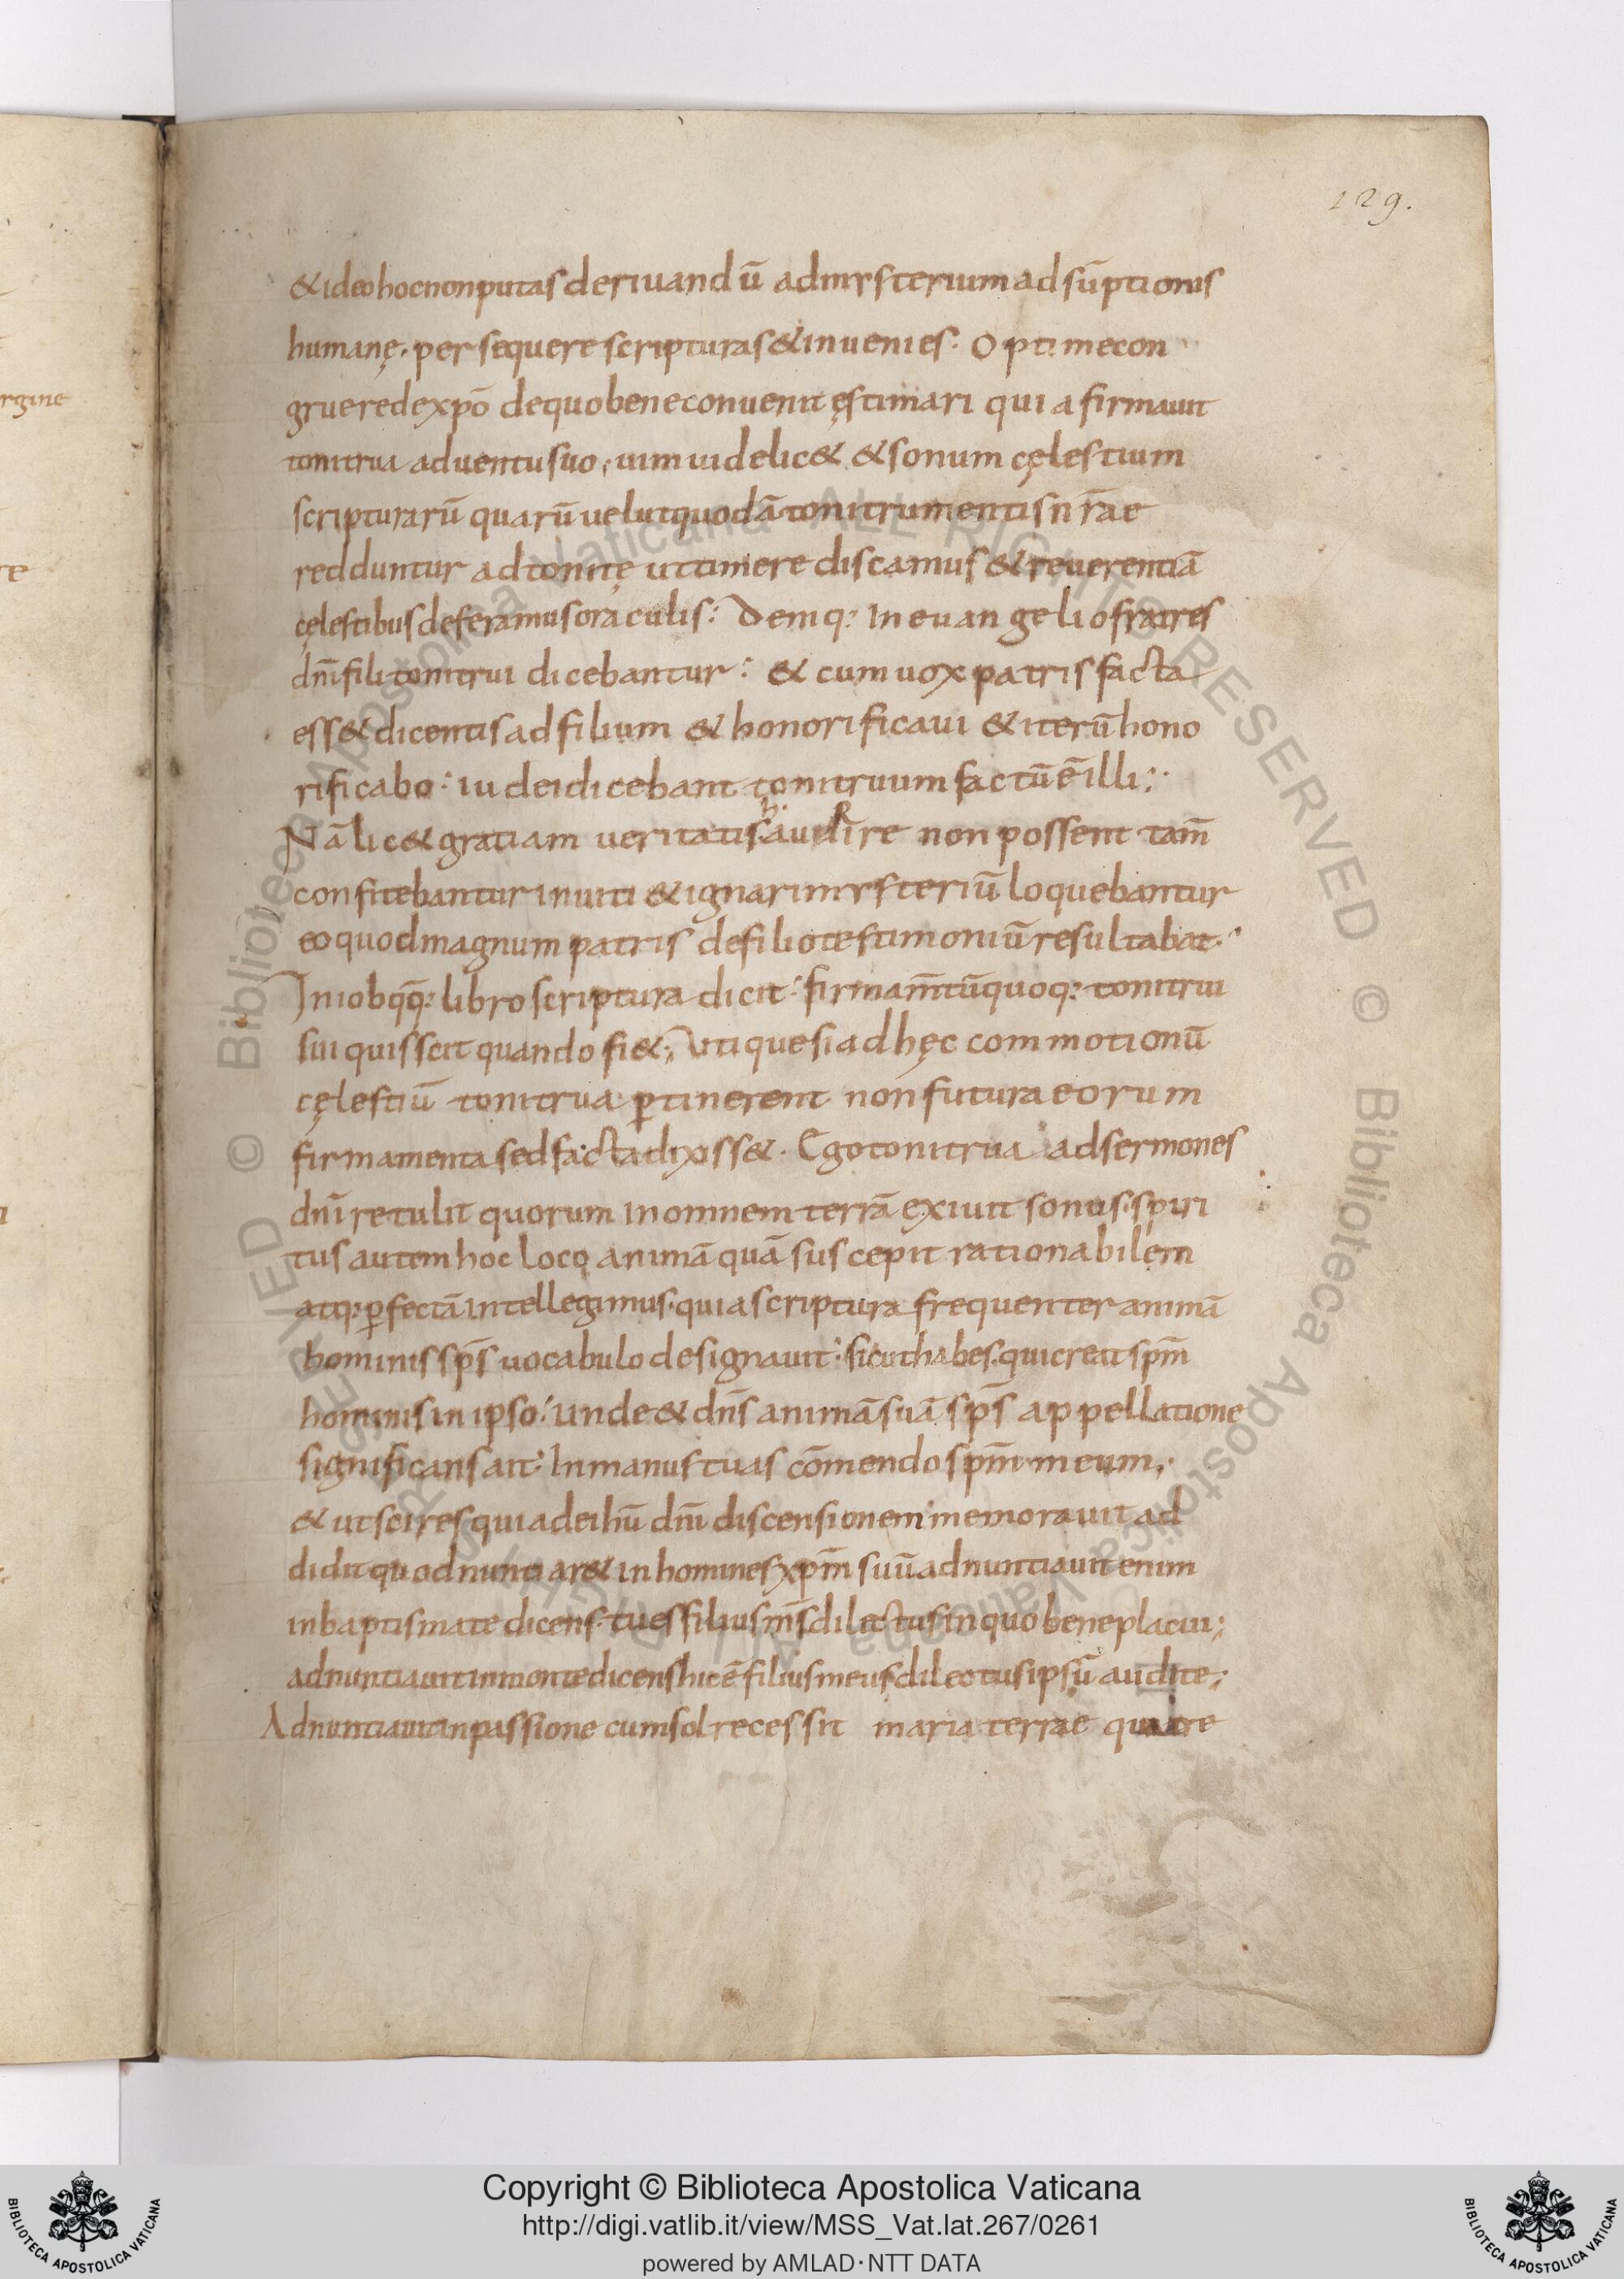 129.
& ideo hoc non putas deriuandū ad mysterium adsūptionis
humanę. persequere scripturas & inuenies. Optime con
gruered exp̄o de quo bene conuenit ęstimari qui afirmauit
tonitrua aduentu suo, uim uidelic& & sonum cęlestium
scripturarū quarū uelut quodā tonitru mentis n̄rae
redduntur adtonitę ut timere discamus & reuerentiā
cęlestibus deferamus oraculis: Deniq: in euangelio fratres
dn̄i fili tonitrui dicebantur: & cum uox patris facta
ess& dicentis ad filium & honorificaui & iterū hono
rificabo: iudei dicebant tonitruum factū ē illi:
Nā lic& gratiam ueritatis audire non possent tam̄
confitebantur inuiti & ignari mysteriū loquebantur
eo quod magnum patris de filio testimoniū resultabat.
In iob qq: libro scriptura dicit: firmam̄tū quoq: tonitrui
sui quis scit quando fi&; Utique si ad hęc commotionū
cęlestiū tonitrua ꝑtinerent non futura eorum
firmamenta sed facta dixiss&. Ego tonitrua ad sermones
dn̄i retulit quorum in omnem terrā exiuit sonus. spiri
tus autem hoc loco animā quā suscepit rationabilem
atq: ꝑfectā intellegimus. quia scriptura frequenter animā
hominis sp̄s uocabulo designauit. sicut habes. qui creat sp̄m
hominis in ipso: unde & dn̄s animā suā sp̄s appellatione
significans ait: In manus tuas cōmendo sp̄m meum,
& ut scires quia de ih̄u dn̄i discensionem memorauit ad
didit quod nuntiar& in homines xp̄m suū adnuntiauit enim
in baptismate dicens. tu es filius m̄s dilectus in quo bene placui;
adnuntiauit in monte dicens hic ē filius meus dilectus ipsū audite;
Adnuntiauit in passione cum sol recessit maria terrae
rgine
Copyright © Biblioteca Apostolica Vaticana
http://digi.vatlib.it/view/MSS_Vat.lat.267/0261
powered by AMLAD · NTT DATA
BIBLIOTECA APOSTOLICA VATICANA
BIBLIOTECA APOSTOLICA VATICANA